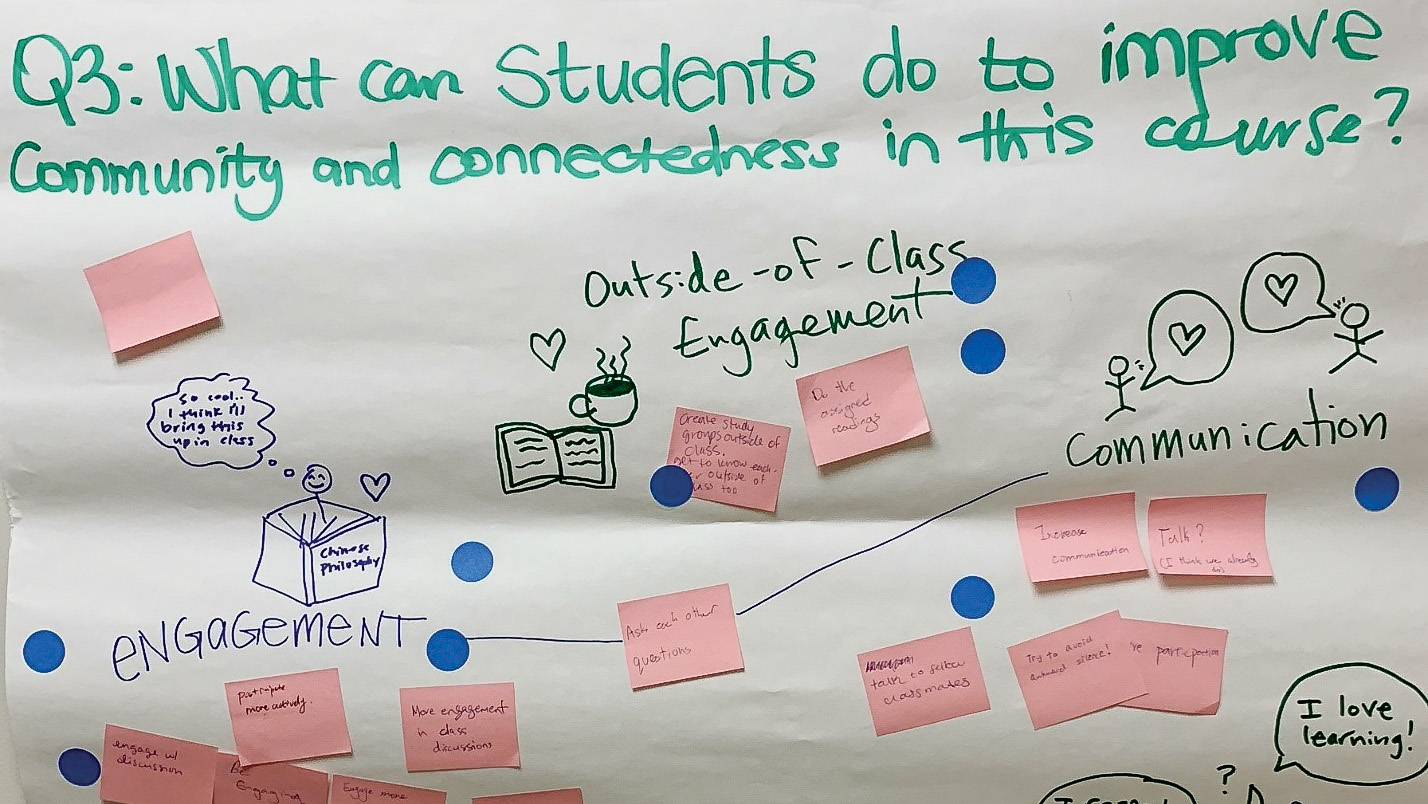 Q3: What can Students do to improve
Community and connectedness in this course?
Outside-of-Class
Engagement
So cool..
I think I'll
bring this
up in class
Chinese
Philosophy
ENGAGEMENT
Create study
groups outside of
class.
get to know each
outside of
too
Do the
assigned
readings
Communication
Increase
communication
Talk?
(I think we already
do)
Ask each other
questions
talk to fellow
classmates
Try to avoid
awkward silence!
participation
participate
more actively.
More engagement
in class
discussions
engage w/
discussion
Be
Engaging
Engage more
I love
learning!
?